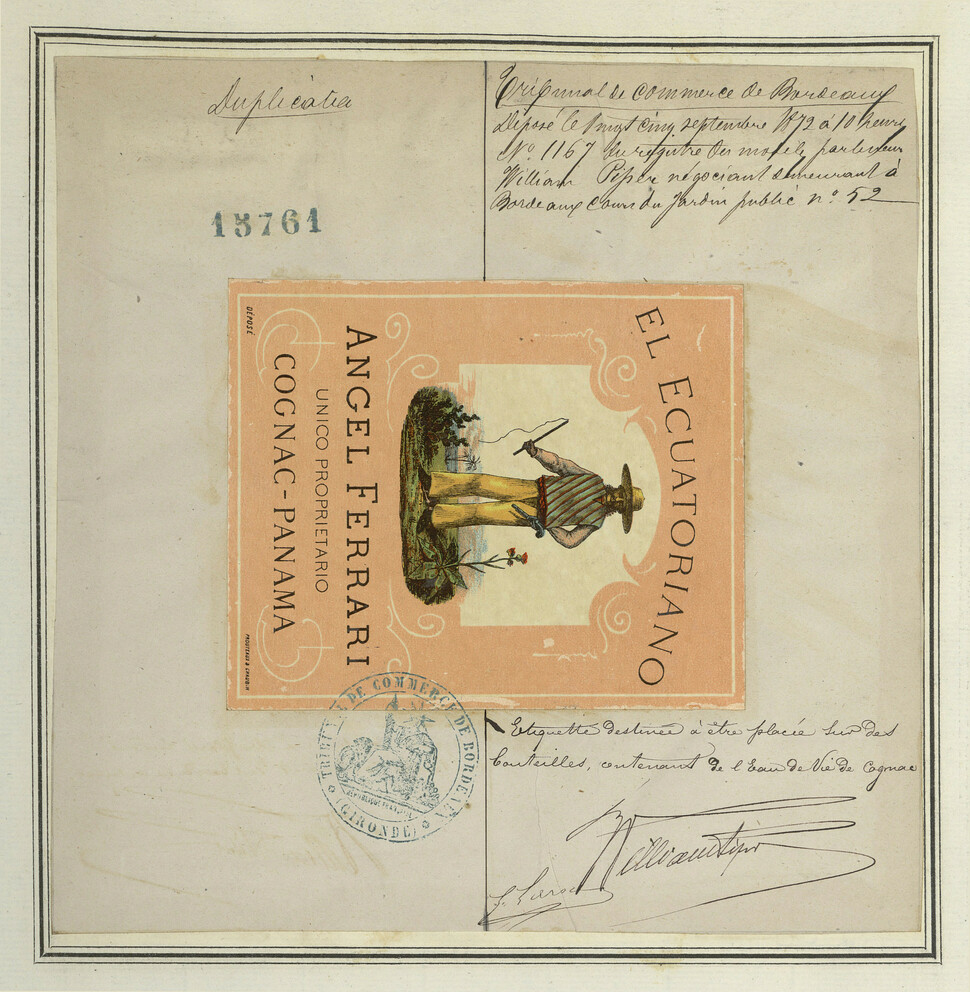 Duplicata
15761
Tribunal de Commerce de Bordeaux
Déposé le vingt cinq septembre 1872 à 10 heures
N.o 1167 du registre des models par le sieur
William Piper négociant demeurant à
Bordeaux Cours du Jardin public n.o 52
EL ECUATORIANO
ANGEL FERRARI
UNICO PROPRIETARIO
COGNAC-PANAMA
DÉPOSÉ
Etiquette destinée à être placée sur des
bouteilles, contenant de l'Eau de Vie de Cognac
TRIBUNAL DE COMMERCE DE BORDEAUX
RÉPUBLIQUE FRANÇAISE
(GIRONDE)
William Piper